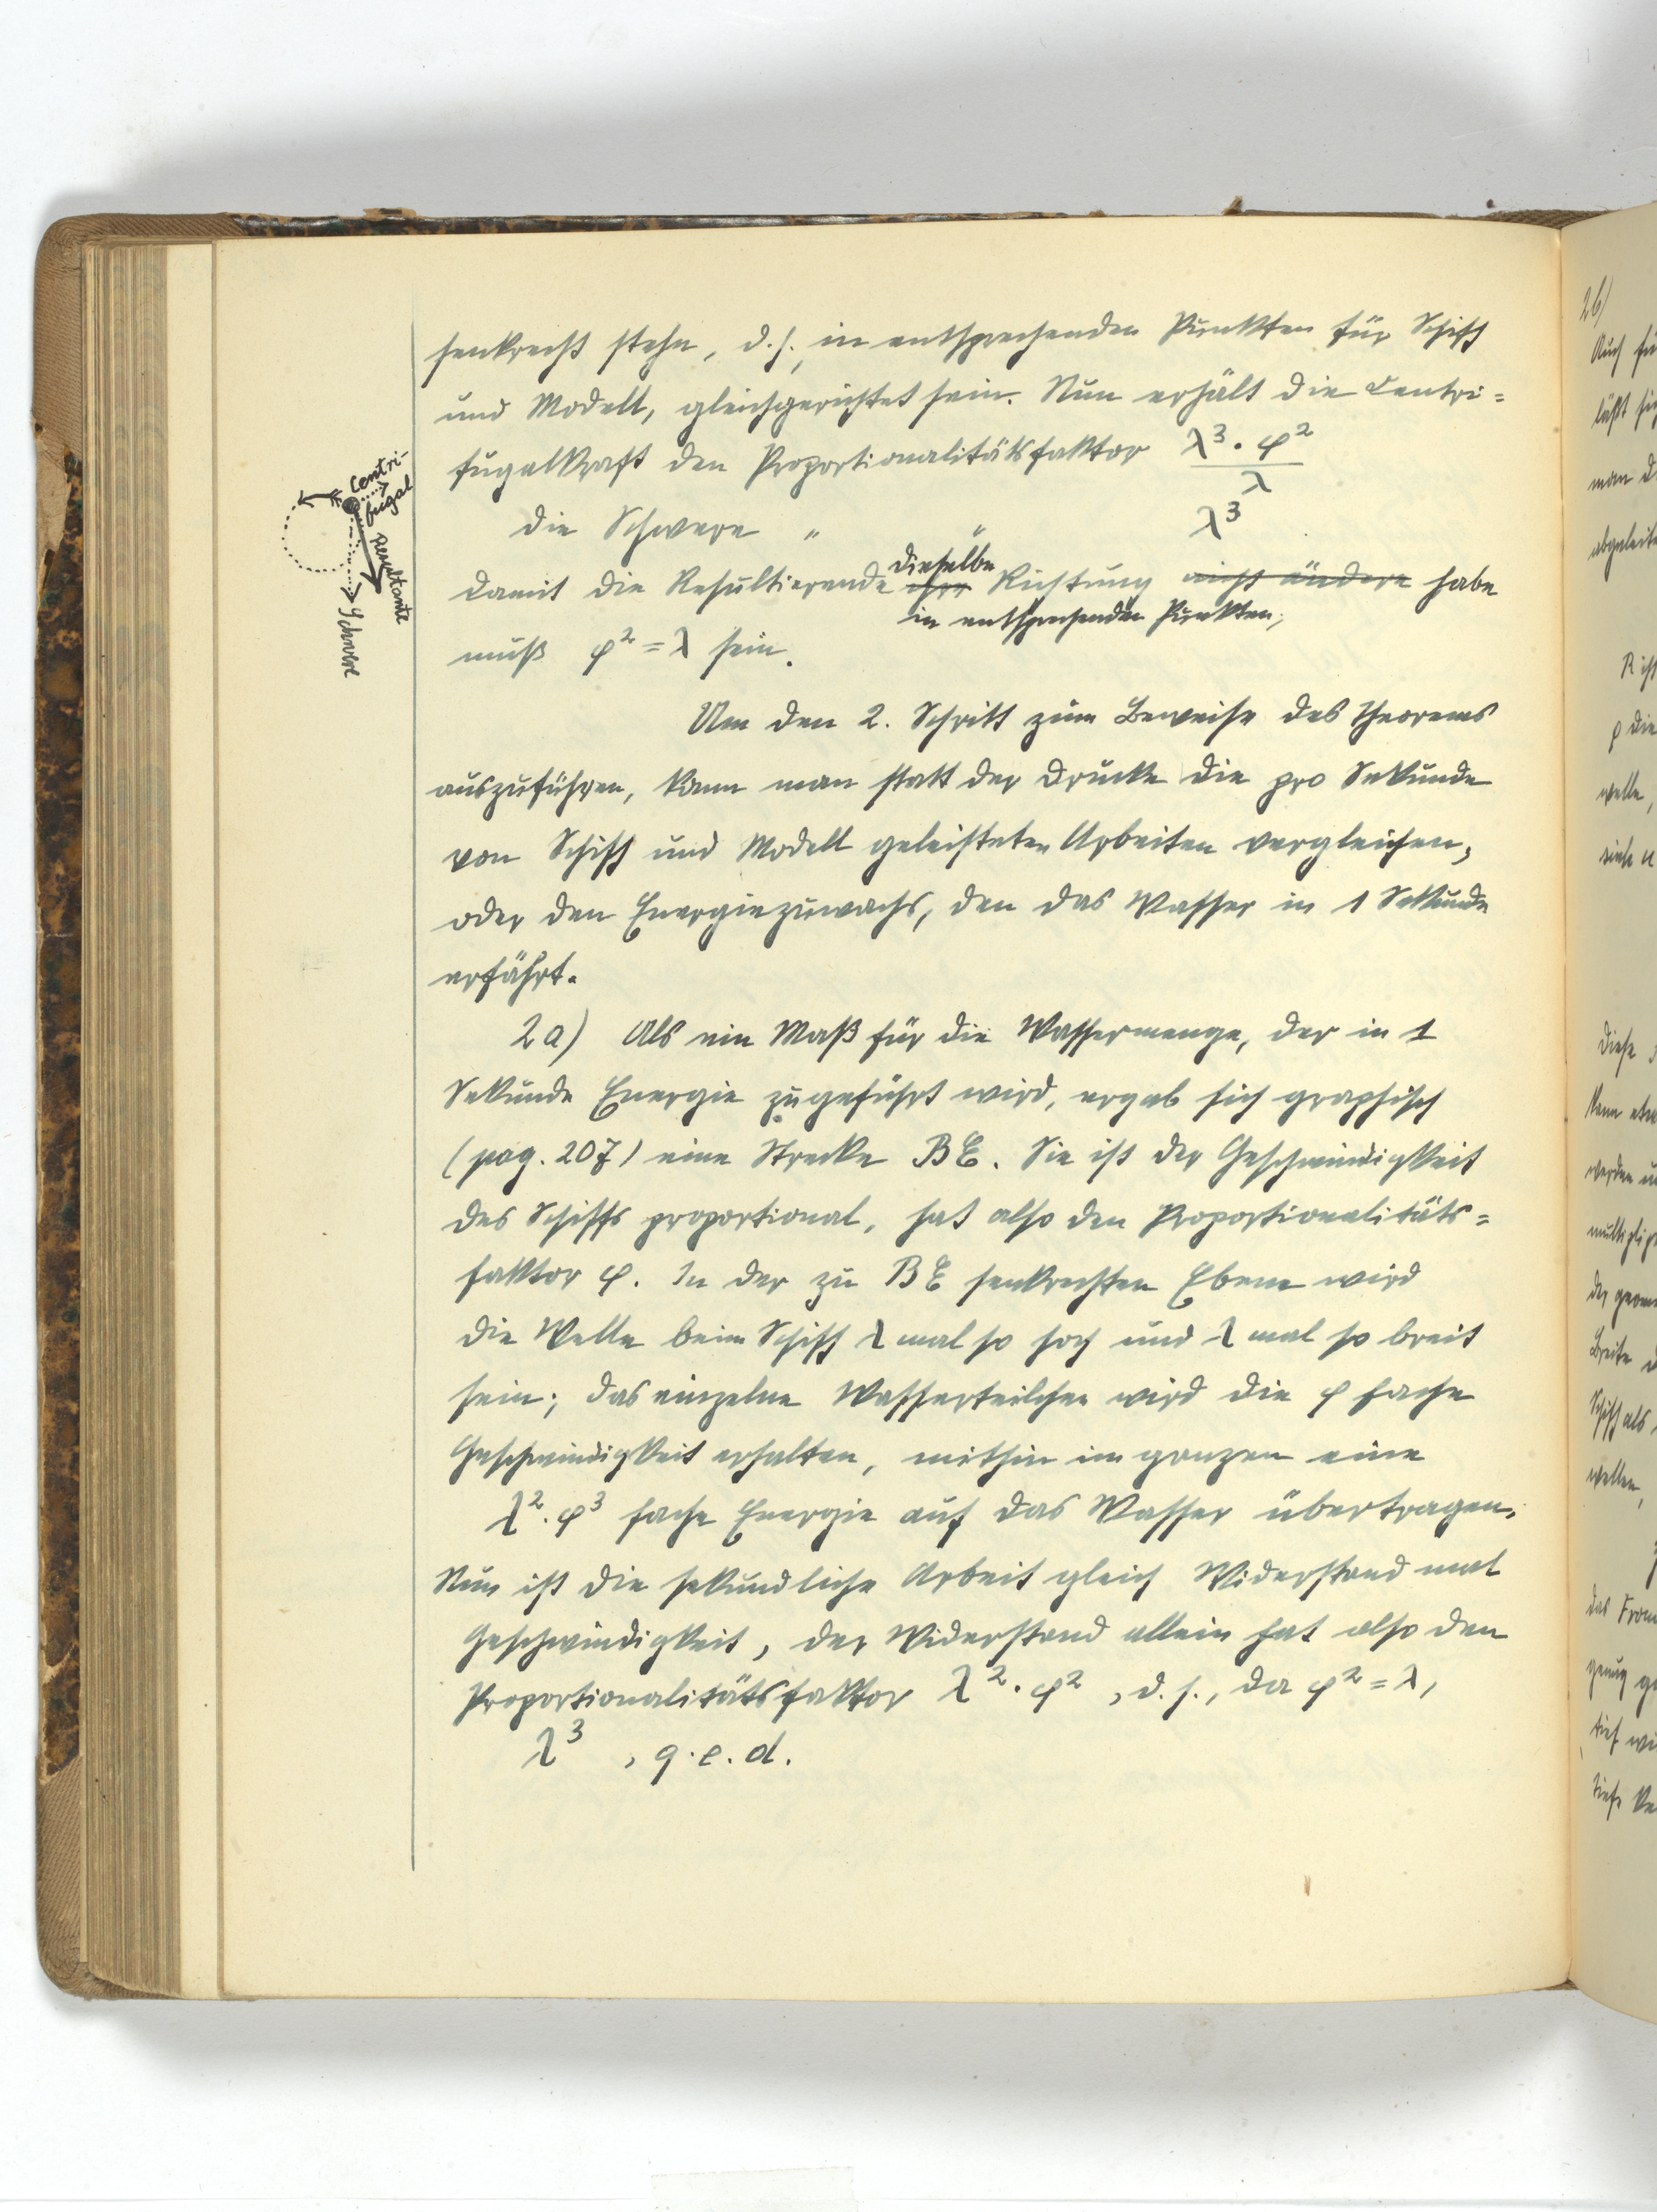 senkrecht stehn, d.h., in entsprechenden Punkten für Schiff
und Modell, gleichgerichtet sein. Nun erhält die Centri=
fugalkraft den Proportionalitätsfaktor λ³·φ²
λ
die Schwere " " λ³
dieselbe
damit die Resultierende ihre Richtung nicht ändere habe
in entsprechenden Punkten,
muß φ² = λ sein.
Um den 2. Schritt zum Beweise des Theorems
auszuführen, kann man statt der Drucke die pro Sekunde
von Schiff und Modell geleisteten Arbeiten vergleichen,
oder den Energiezuwachs, den das Wasser in 1 Sekunde
erfährt.
2a) Als ein Maß für die Wassermenge, der in 1
Sekunde Energie zugeführt wird, ergab sich graphisch
(pag. 207) eine Strecke BE. Sie ist der Geschwindigkeit
des Schiffs proportional, hat also den Proportionalitäts=
faktor φ. In der zu BE senkrechten Ebene wird
die Welle beim Schiff λ mal so hoch und λ mal so breit
sein; das einzelne Wasserteilchen wird die φ fache
Geschwindigkeit erhalten, mithin im ganzen eine
λ²·φ³ fache Energie auf das Wasser übertragen.
Nun ist die sekundliche Arbeit gleich Widerstand mal
Geschwindigkeit, der Widerstand allein hat also den
Proportionalitätsfaktor λ²·φ², d.h., da φ² = λ,
λ³, q.e.d.
Centri-
fugal
Resultante
Schwere
2b)
Auch fü
läßt sich
man d
abgeleite
R ist
φ die
welle,
Diese
kann etw
werden u
der geome
Breite d
Schiff als
wellen,
das From
genug ge
tief wi